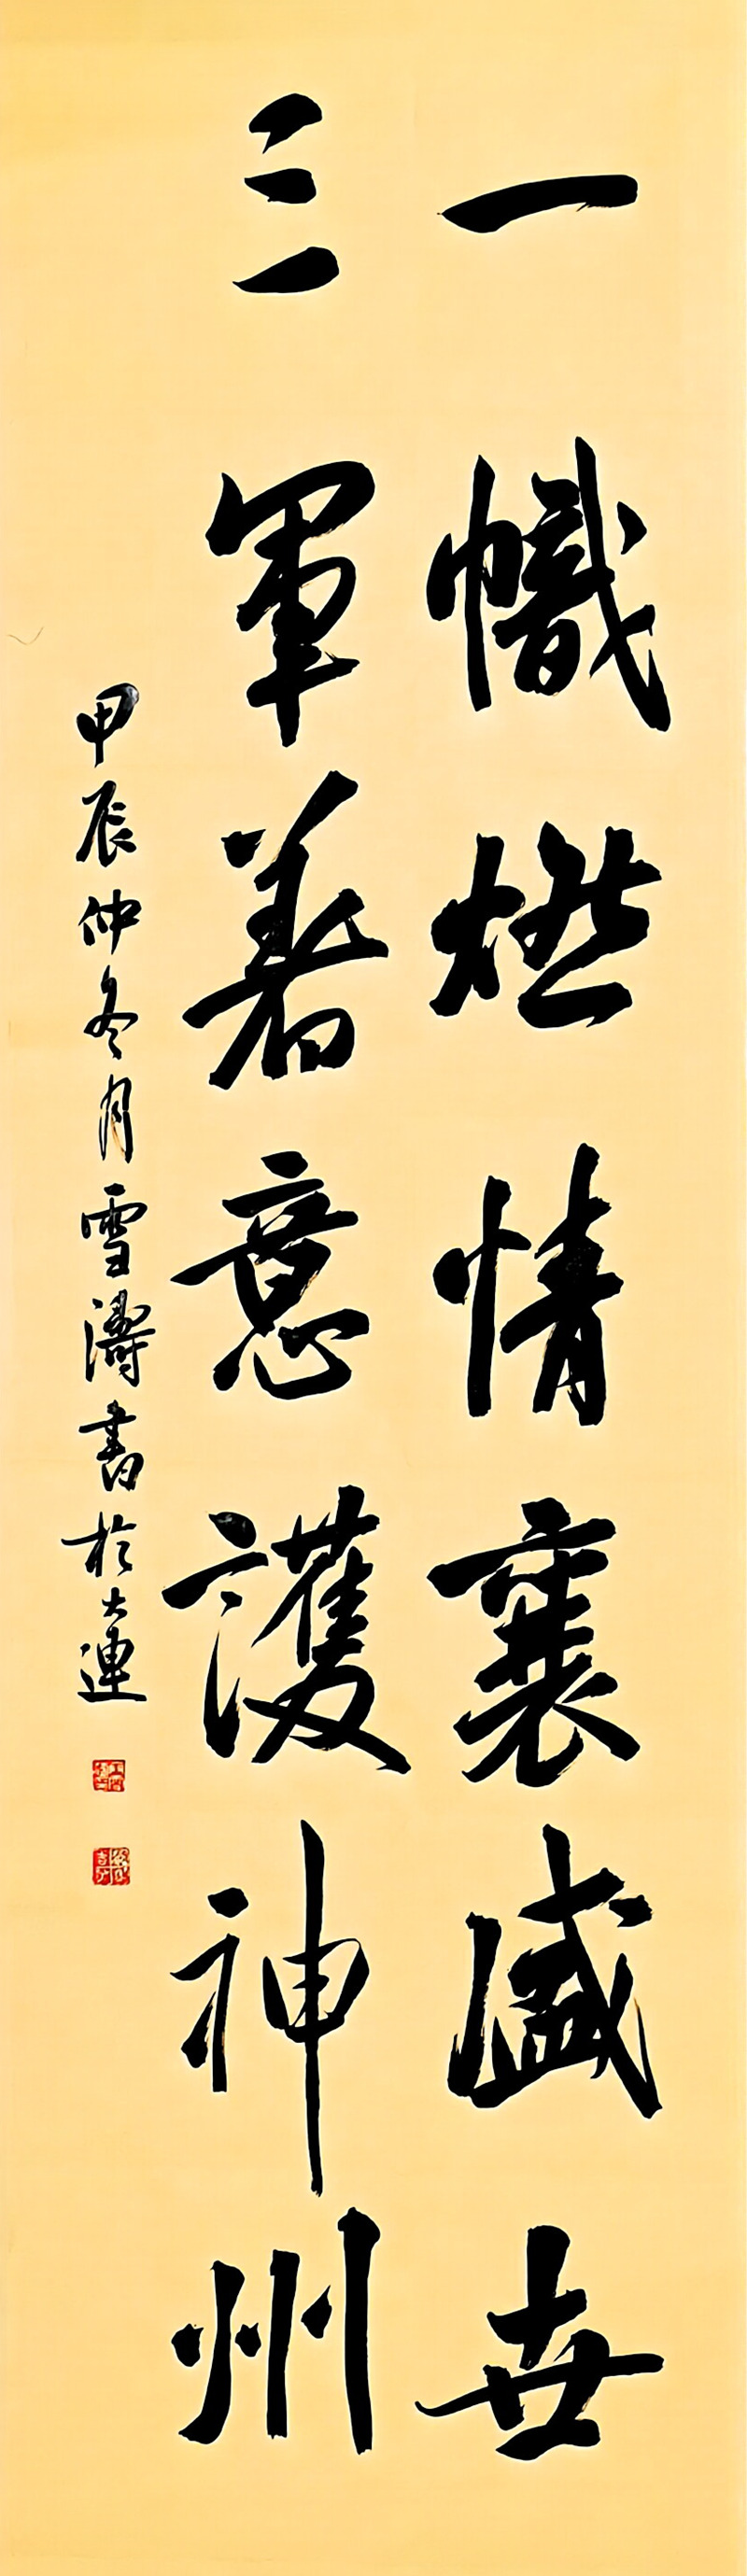 一幟燃情襄盛世
三軍著意護神州
甲辰仲冬月雪濤書於大連